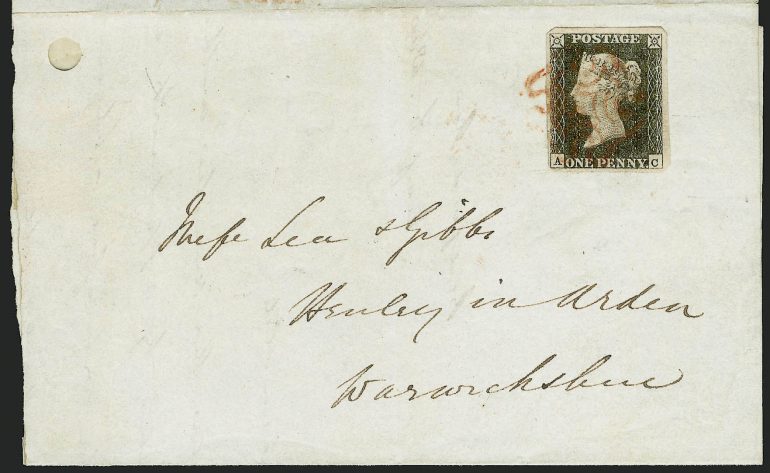 POSTAGE
A C
ONE PENNY.
Messrs Lea & Gibbs
Henley in Arden
Warwickshire